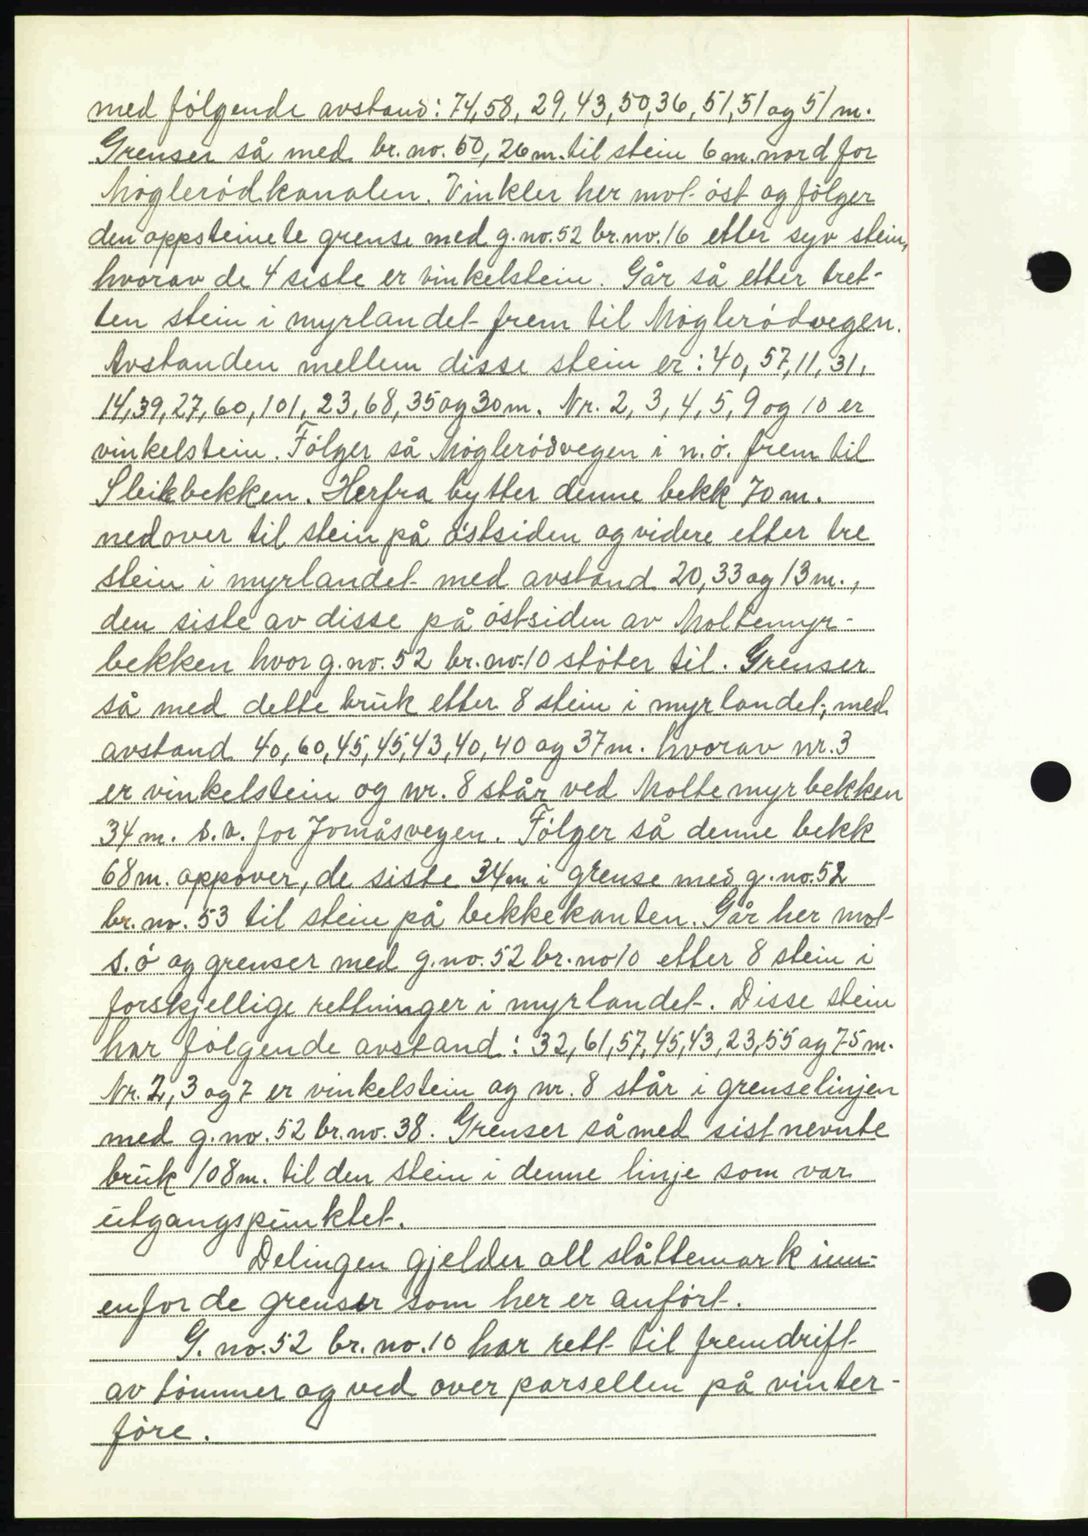 med følgende avstand: 74, 58, 29, 43, 50, 36, 51, 51 og 51 m.
Grenser så med br. no. 50, 26 m. til stein 6 m. nord for
Møglerødkanalen. Vinkler her mot øst og følger
den oppsteinete grense med g. no. 52 br. no. 16 etter syv stein,
hvorav de 4 siste er vinkelstein. Går så etter tret-
ten stein i myrlandet frem til Møglerødvegen.
Avstanden mellem disse stein er: 40, 57, 11, 31,
14, 39, 27, 60, 101, 23, 68, 35 og 30 m. Nr. 2, 3, 4, 5, 9 og 10 er
vinkelstein. Følger så Møglerødvegen i n.ø. frem til
Sleikbekken. Herfra bytter denne bekk 70 m.
nedover til stein på østsiden og videre etter tre
stein i myrlandet med avstand 20, 33 og 13 m.,
den siste av disse på østsiden av Moltemyr-
bekken hvor g. no. 52 br. no. 10 støter til. Grenser
så med dette bruk etter 8 stein i myrlandet, med
avstand 40, 60, 45, 45, 43, 40, 40 og 37 m. hvorav nr. 3
er vinkelstein og nr. 8 står ved Moltemyrbekken
34 m. s.v. for Jomåsvegen. Følger så denne bekk
68 m. oppover, de siste 34 m i grense med g. no. 52
br. no. 53 til stein på bekkekanten. Går her mot
s.ø og grenser med g. no. 52 br. no 10 etter 8 stein i
forskjellige rettninger i myrlandet. Disse stein
har følgende avstand: 32, 61, 57, 45, 43, 23, 55 og 75 m.
Nr. 2, 3 og 7 er vinkelstein og nr. 8 står i grenselinjen
med g. no. 52 br. no. 38. Grenser så med sist nevnte
bruk 108 m. til den stein i denne linje som var
utgangspunktet.
Delingen gjelder all slåttemark inn-
enfor de grenser som her er anført.
G. no. 52 br. no. 10 har rett til fremdrift
av tømmer og ved over parsellen på vinter-
føre.